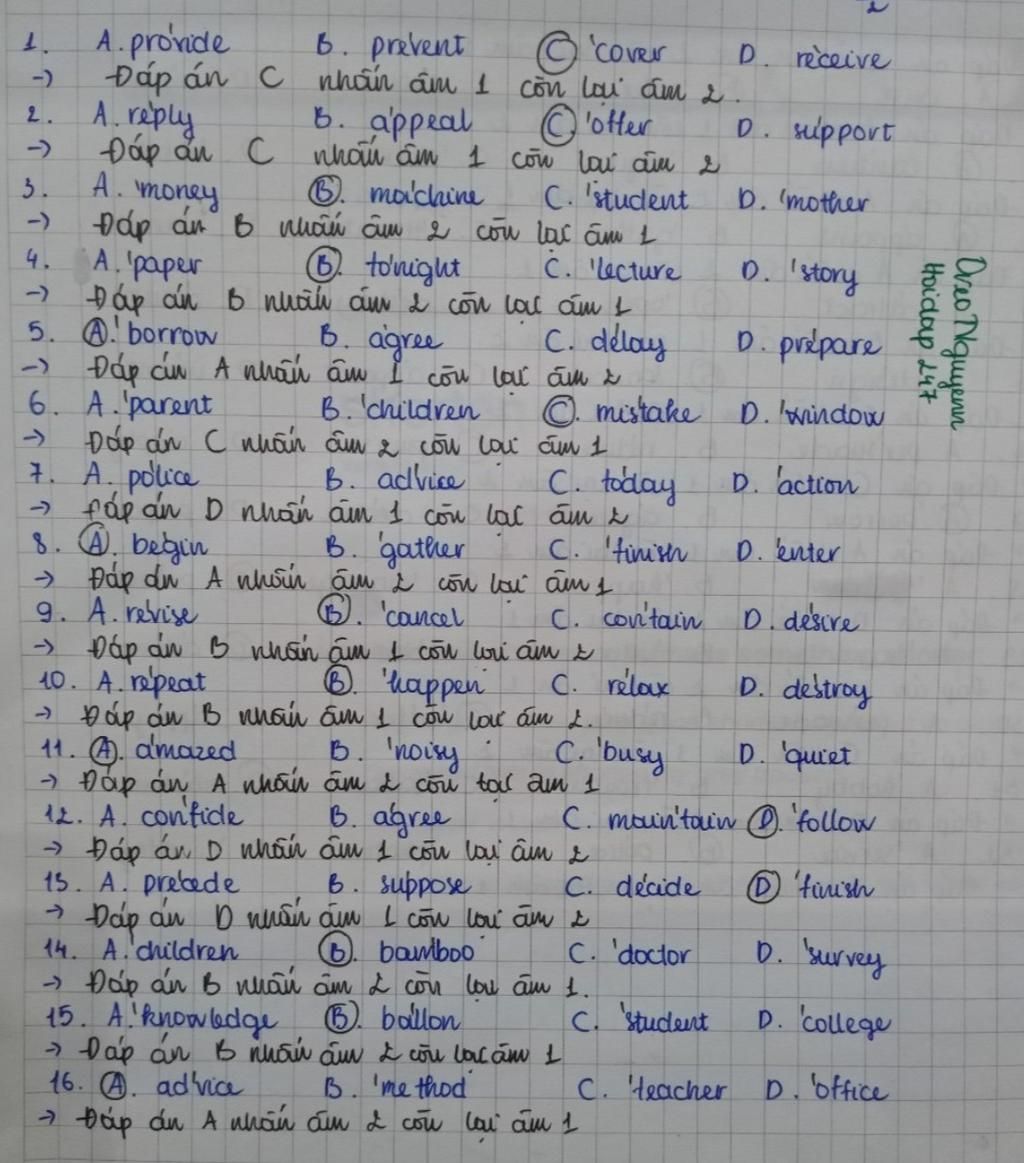 2
1. A. pro'vide B. pre'vent C 'cover D. re'ceive
-> Đáp án C nhấn âm 1 còn lại âm 2.
2. A. re'ply B. a'ppeal C 'offer D. su'pport
-> Đáp án C nhấn âm 1 còn lại âm 2
3. A. 'money B. ma'chine C. 'student D. 'mother
-> Đáp án B nhấn âm 2 còn lại âm 1
4. A. 'paper B. to'night C. 'lecture D. 'story
-> Đáp án B nhấn âm 2 còn lại âm 1
5. A. 'borrow B. a'gree C. de'lay D. pre'pare
-> Đáp án A nhấn âm 1 còn lại âm 2
6. A. 'parent B. 'children C. mis'take D. 'window
-> Đáp án C nhấn âm 2 còn lại âm 1
7. A. po'lice B. ad'vice C. to'day D. 'action
-> Đáp án D nhấn âm 1 còn lại âm 2
8. A. be'gin B. 'gather C. 'finish D. 'enter
-> Đáp án A nhấn âm 2 còn lại âm 1
9. A. re'vise B. 'cancel C. con'tain D. de'sire
-> Đáp án B nhấn âm 1 còn lại âm 2
10. A. re'peat B. 'happen C. re'lax D. de'stroy
-> Đáp án B nhấn âm 1 còn lại âm 2.
11. A. a'mazed B. 'noisy C. 'busy D. 'quiet
-> Đáp án A nhấn âm 2 còn lại âm 1
12. A. con'fide B. a'gree C. main'tain D. 'follow
-> Đáp án D nhấn âm 1 còn lại âm 2
13. A. pre'cede B. su'ppose C. de'cide D 'finish
-> Đáp án D nhấn âm 1 còn lại âm 2
14. A. 'children B. bam'boo C. 'doctor D. 'survey
-> Đáp án B nhấn âm 2 còn lại âm 1.
15. A. 'knowledge B. ba'llon C. 'student D. 'college
-> Đáp án B nhấn âm 2 còn lại âm 1
16. A. ad'vice B. 'method C. 'teacher D. 'office
-> Đáp án A nhấn âm 2 còn lại âm 1
Hoidap 247